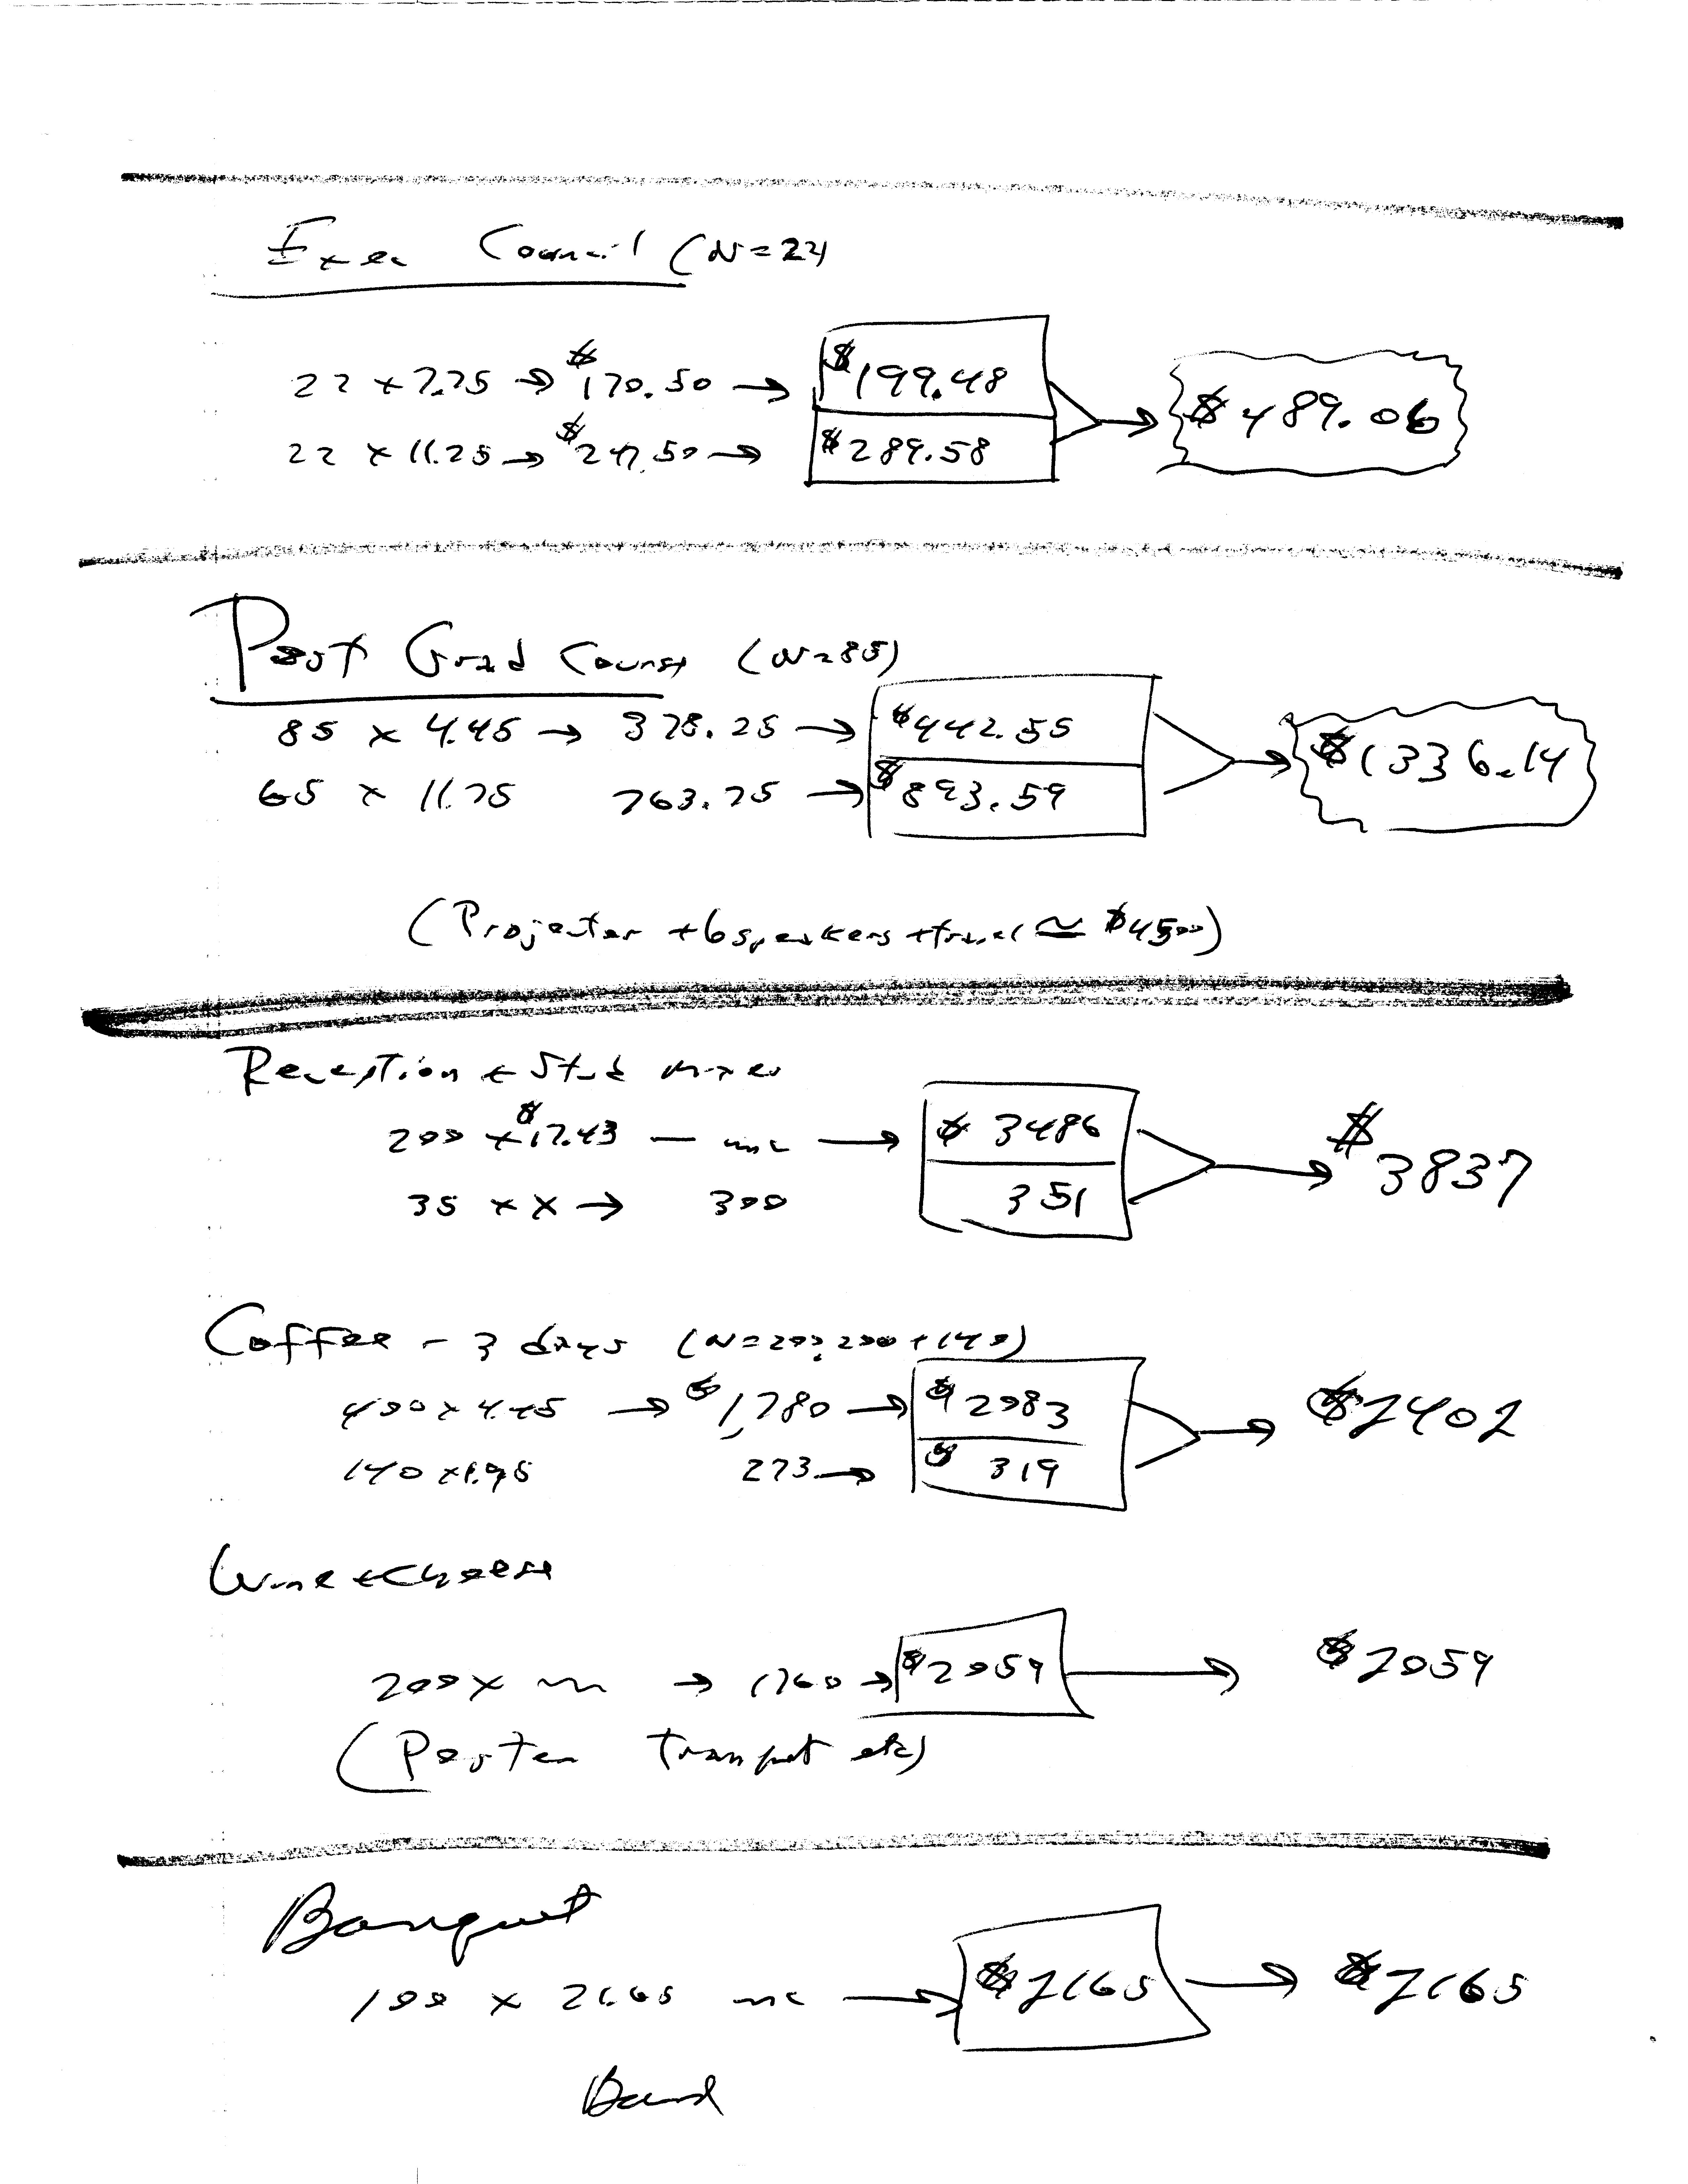 Exec Council (N=22)
22 x 7.75 → $170.50 → $199.48 → $489.06
22 x 11.25 → $247.50 → $289.58
Post Grad Course (N=85)
85 x 4.45 → 378.25 → $442.55 → $1336.14
65 x 11.75 763.75 → $893.59
(Projector + 6 speakers + travel ≃ $4500)
Reception + Stud mixer
200 x $17.43 — inc → $3486 → $3837
35 x x → 300 351
Coffee - 3 days (N=200, 200 + 140)
400 x 4.45 → $1,780 → $2083 → $2402
140 x 1.95 273 → $319
Wine + Cheese
200 x → 1760 → $2059 → $2059
(Poster Transpt etc)
Banquet
100 x 21.65 inc → $2165 → $2165
Band